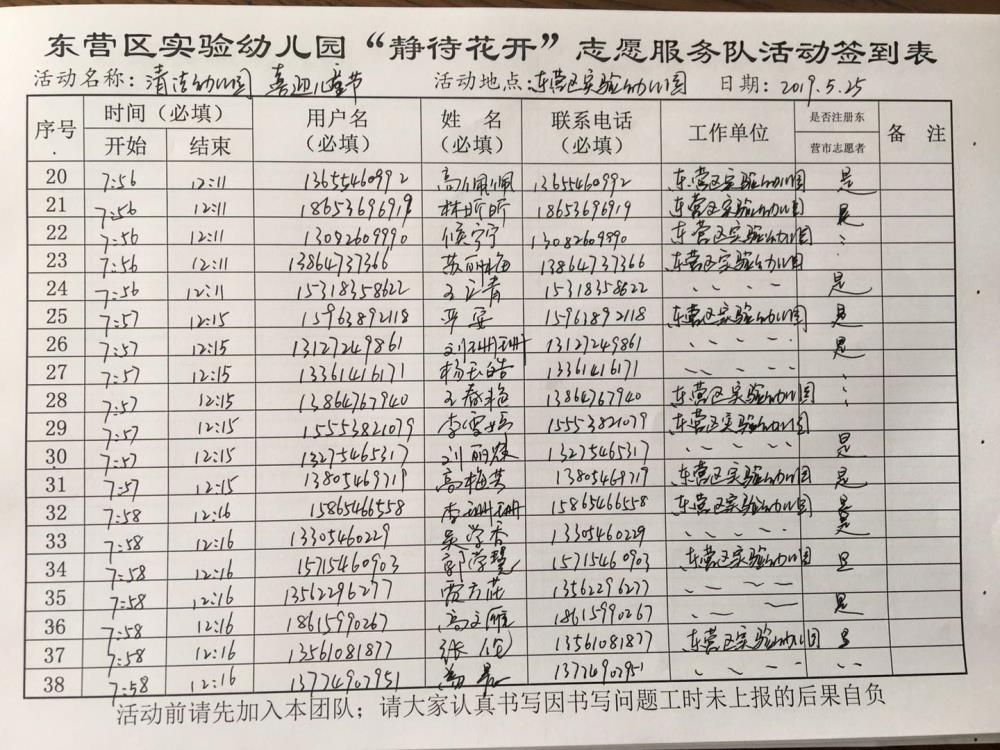 东营区实验幼儿园“静待花开”志愿服务队活动签到表
活动名称：清洁幼儿园 喜迎儿童节 活动地点：东营区实验幼儿园 日期：2019.5.25
序号 时间（必填） 用户名（必填） 姓 名（必填） 联系电话（必填） 工作单位 是否注册东营市志愿者 备 注
开始 结束
20 7:56 12:11 13655460992 高佩佩 13655460992 东营区实验幼儿园 是
21 7:56 12:11 18653696919 林昕昕 18653696919 东营区实验幼儿园 是
22 7:56 12:11 13082609990 侯宁宁 13082609890 东营区实验幼儿园
23 7:56 12:11 13864737366 苏丽梅 13864737366 东营区实验幼儿园
24 7:56 12:11 15318358622 15318358622 是
25 7:57 12:15 15963892118 平安 15963892118 东营区实验幼儿园 是
26 7:57 12:15 13127249861 刘珊珊 13127249861 是
27 7:57 12:15 13361416171 13361416171
28 7:57 12:15 13864767940 王春艳 13864767940 东营区实验幼儿园
29 7:57 12:15 15553821079 15553821079 东营区实验幼儿园
30 7:57 12:15 13275465317 13275465317 是
31 7:57 12:15 13805469719 高梅英 13805469719 东营区实验幼儿园 是
32 7:58 12:16 15865466558 李珊珊 15865466558 东营区实验幼儿园 是
33 7:58 12:16 13305460229 吴学香 13305460229 是
34 7:58 12:16 15715460903 15715460903 东营区实验幼儿园 是
35 7:58 12:16 13562296277 13562296277
36 7:58 12:16 18615990267 高文雁 18615990267 是
37 7:58 12:16 13561081877 13561081877 东营区实验幼儿园 是
38 7:58 12:16 13774907951 13774907951
活动前请先加入本团队；请大家认真书写因书写问题工时未上报的后果自负